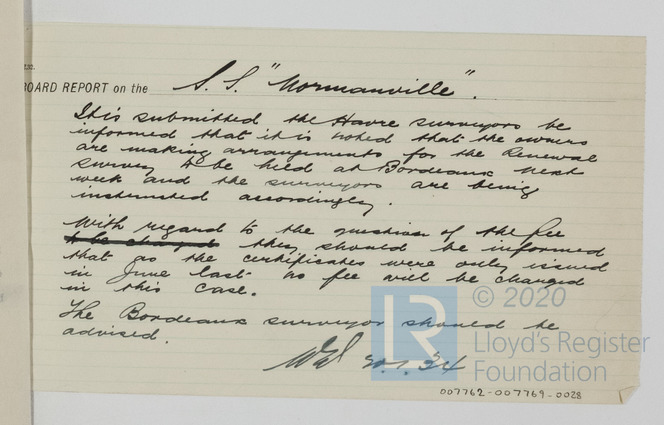 BOARD REPORT on the S.S. "Normanville".
It is submitted the Havre surveyors be
informed that it is noted that the owners
are making arrangements for the Renewal
survey to be held at Bordeaux next
week and the surveyors are being
instructed accordingly.
With regard to the question of the fee
to be charged they should be informed
that as the certificates were only issued
in June last no fee will be charged
in this case.
The Bordeaux surveyor should be
advised.
20.1.34
LR
© 2020
Lloyd's Register
Foundation
007762-007769-0028